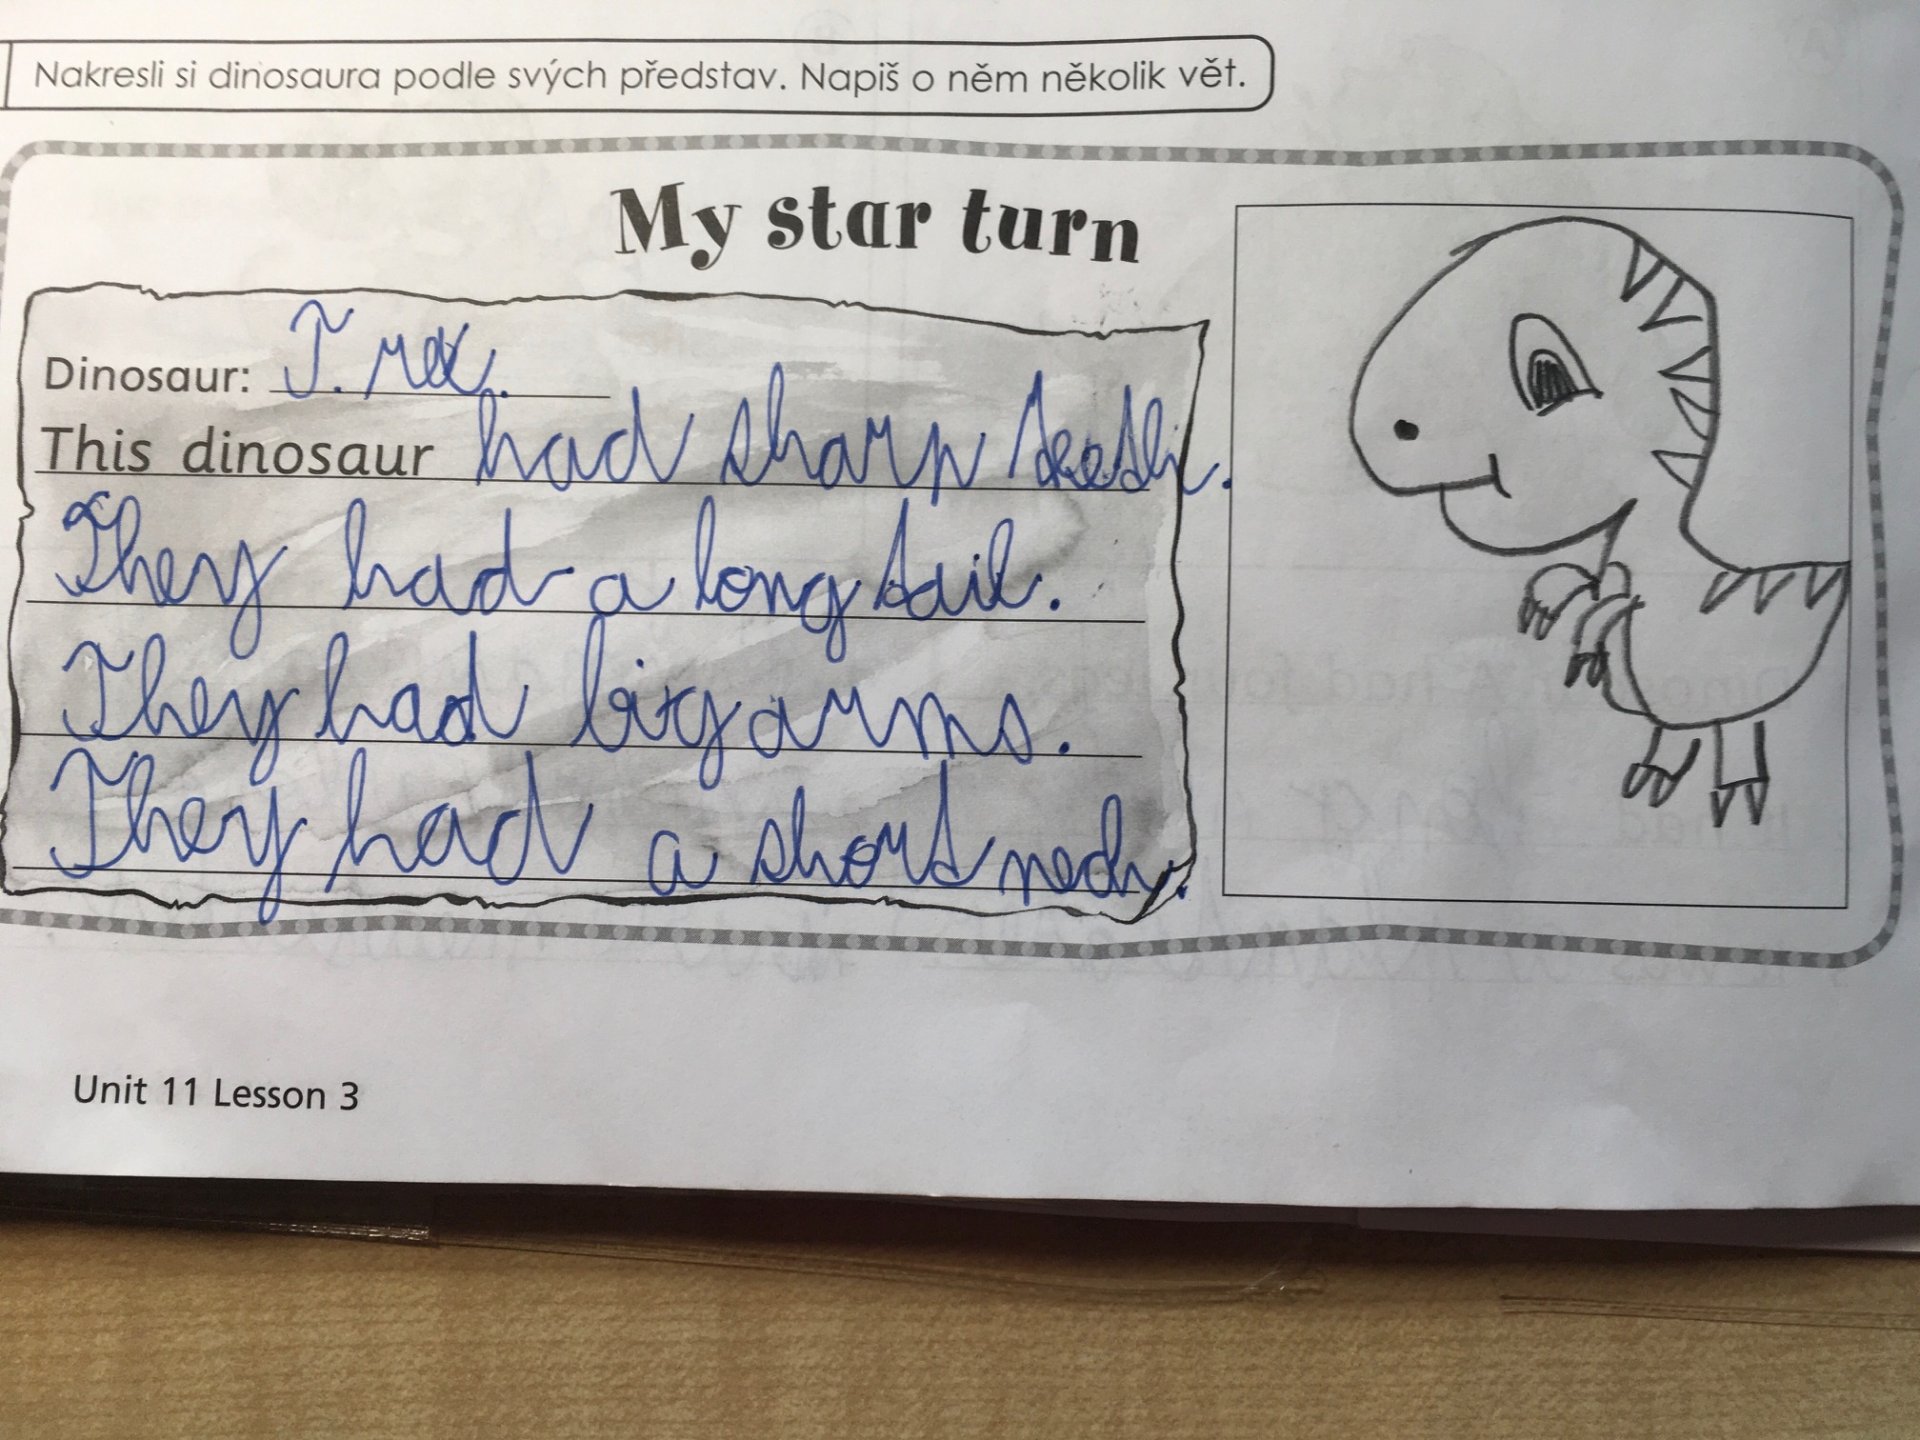 Nakresli si dinosaura podle svých představ. Napiš o něm několik vět.
My star turn
Dinosaur: T. rex.
This dinosaur had sharp teeth.
They had a long tail.
They had big arms.
They had a short neck.
Unit 11 Lesson 3